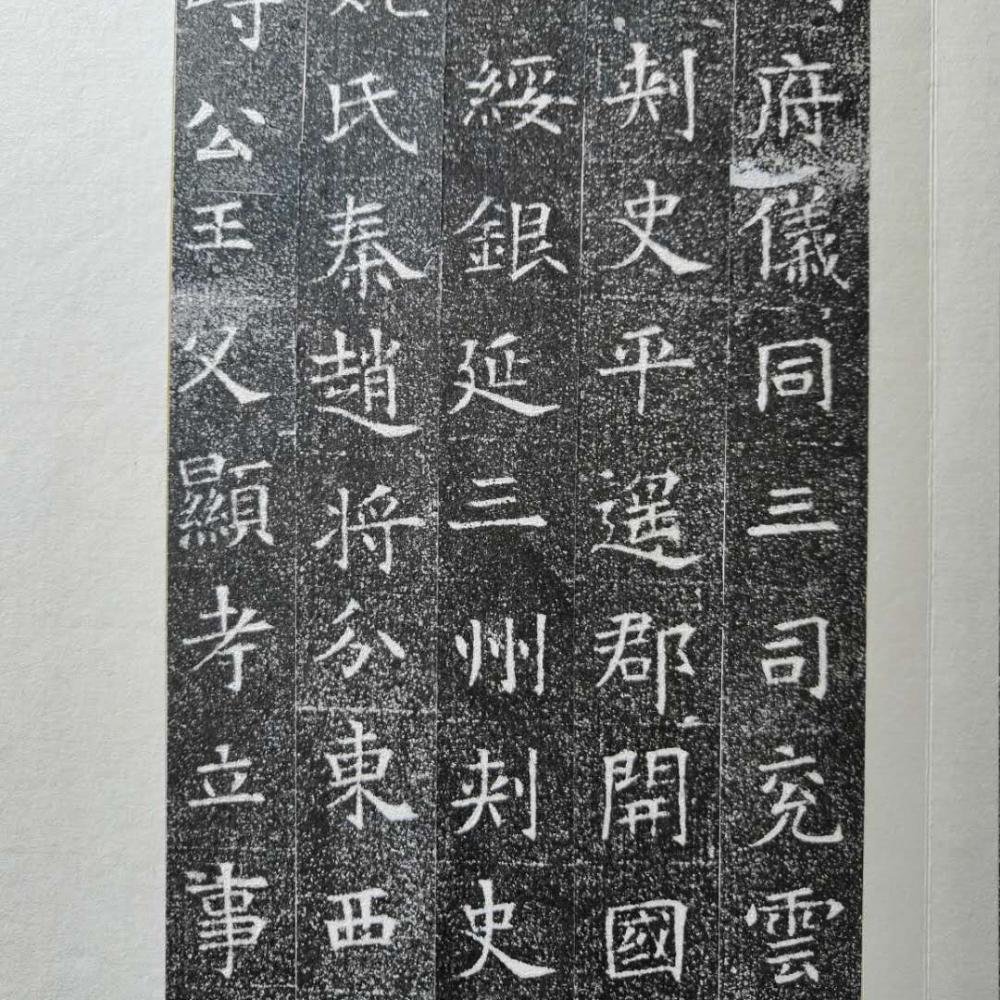 府儀同三司兗雲
刺史平遙郡開國
綏銀延三州刺史
氏秦趙将分東西
公王父顯考立事